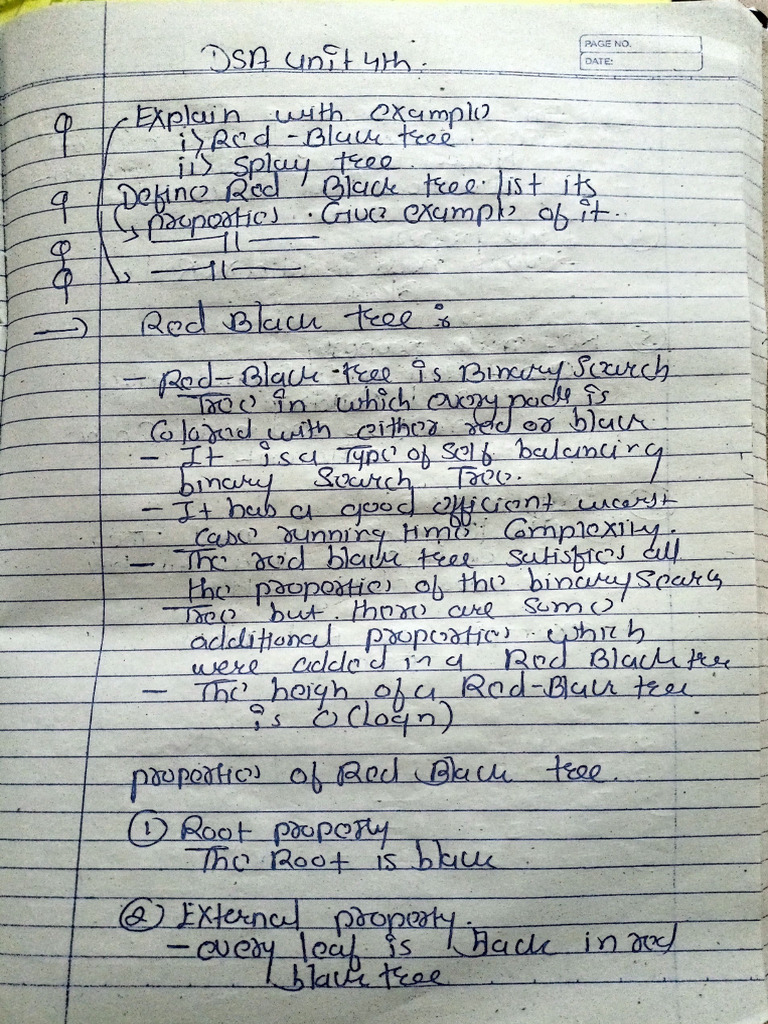 PAGE NO.
DATE:
DSA unit 4th.
Q Explain with example
i) Red-Black tree.
ii) splay tree.
Q Define Red Black tree. list its
properties. Give example of it.
Q —— 11 ——
Q —— 11 ——
→ Red Black tree :
- Red-Black-tree is Binary Search
Tree in which every node is
Colored with either red or black
- It is a Type of self balancing
binary Search Tree.
- It has a good efficient worst
case running time Complexity.
- The red black tree satisfies all
the properties of the binary search
Tree but there are some
additional properties which
were added in a Red Black tree
- The heigh of a Red-Black tree
is O(logn)
properties of Red Black tree.
① Root property
The Root is black
② External property.
- every leaf is Black in red
black tree